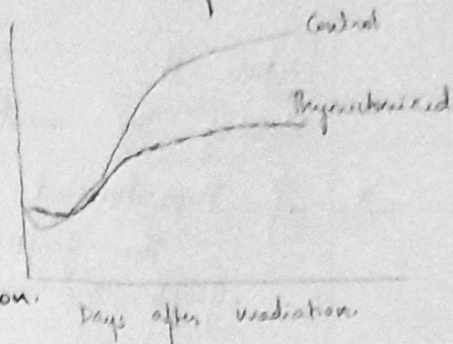 Control
Thymectomised
on.
Days after irradiation.